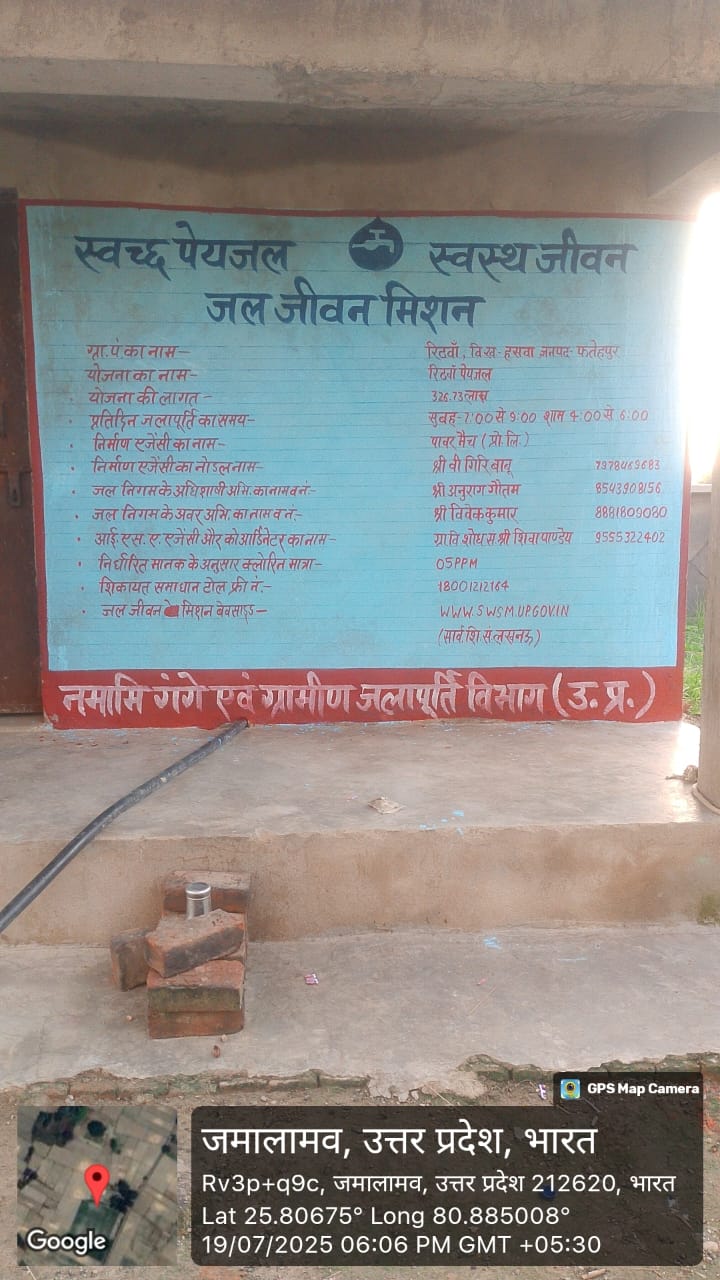 स्वच्छ पेयजल स्वस्थ जीवन
जल जीवन मिशन
ग्रा.पं.का नाम— रिठवाँ, वि.ख- हसवा जनपद- फतेहपुर
योजना का नाम— रिठवाँ पेयजल
योजना की लागत - 326.73 लाख
प्रतिदिन जलापूर्ति का समय- सुबह-7:00 से 9:00 शाम 4:00 से 6:00
निर्माण एजेंसी का नाम- पावर मैच (प्रो.लि.)
निर्माण एजेंसी का नोडल नाम- श्री वी गिरि बाबू 7978469683
जल निगम के अधिशाषी अभि. का नाम व नं:- श्री अनुराग गौतम 8543908156
जल निगम के अवर अभि. का नाम व नं:- श्री विवेक कुमार 8881809080
आई.एस.ए. एजेंसी और कोआर्डिनेटर का नाम- ग्रा वि शोध स श्री शिवा पाण्डेय 9555322402
निर्धारित मानक के अनुसार क्लोरिन मात्रा- 05PPM
शिकायत समाधान टोल फ्री नं:- 18001212164
जल जीवन मिशन बेवसाइड— WWW.SWSM.UP.GOV.IN
(सार्व.शि.सं.लखनऊ)
नमामि गंगे एवं ग्रामीण जलापूर्ति विभाग (उ.प्र.)
GPS Map Camera
जमालामव, उत्तर प्रदेश, भारत
Rv3p+q9c, जमालामव, उत्तर प्रदेश 212620, भारत
Lat 25.80675° Long 80.885008°
19/07/2025 06:06 PM GMT +05:30
Google